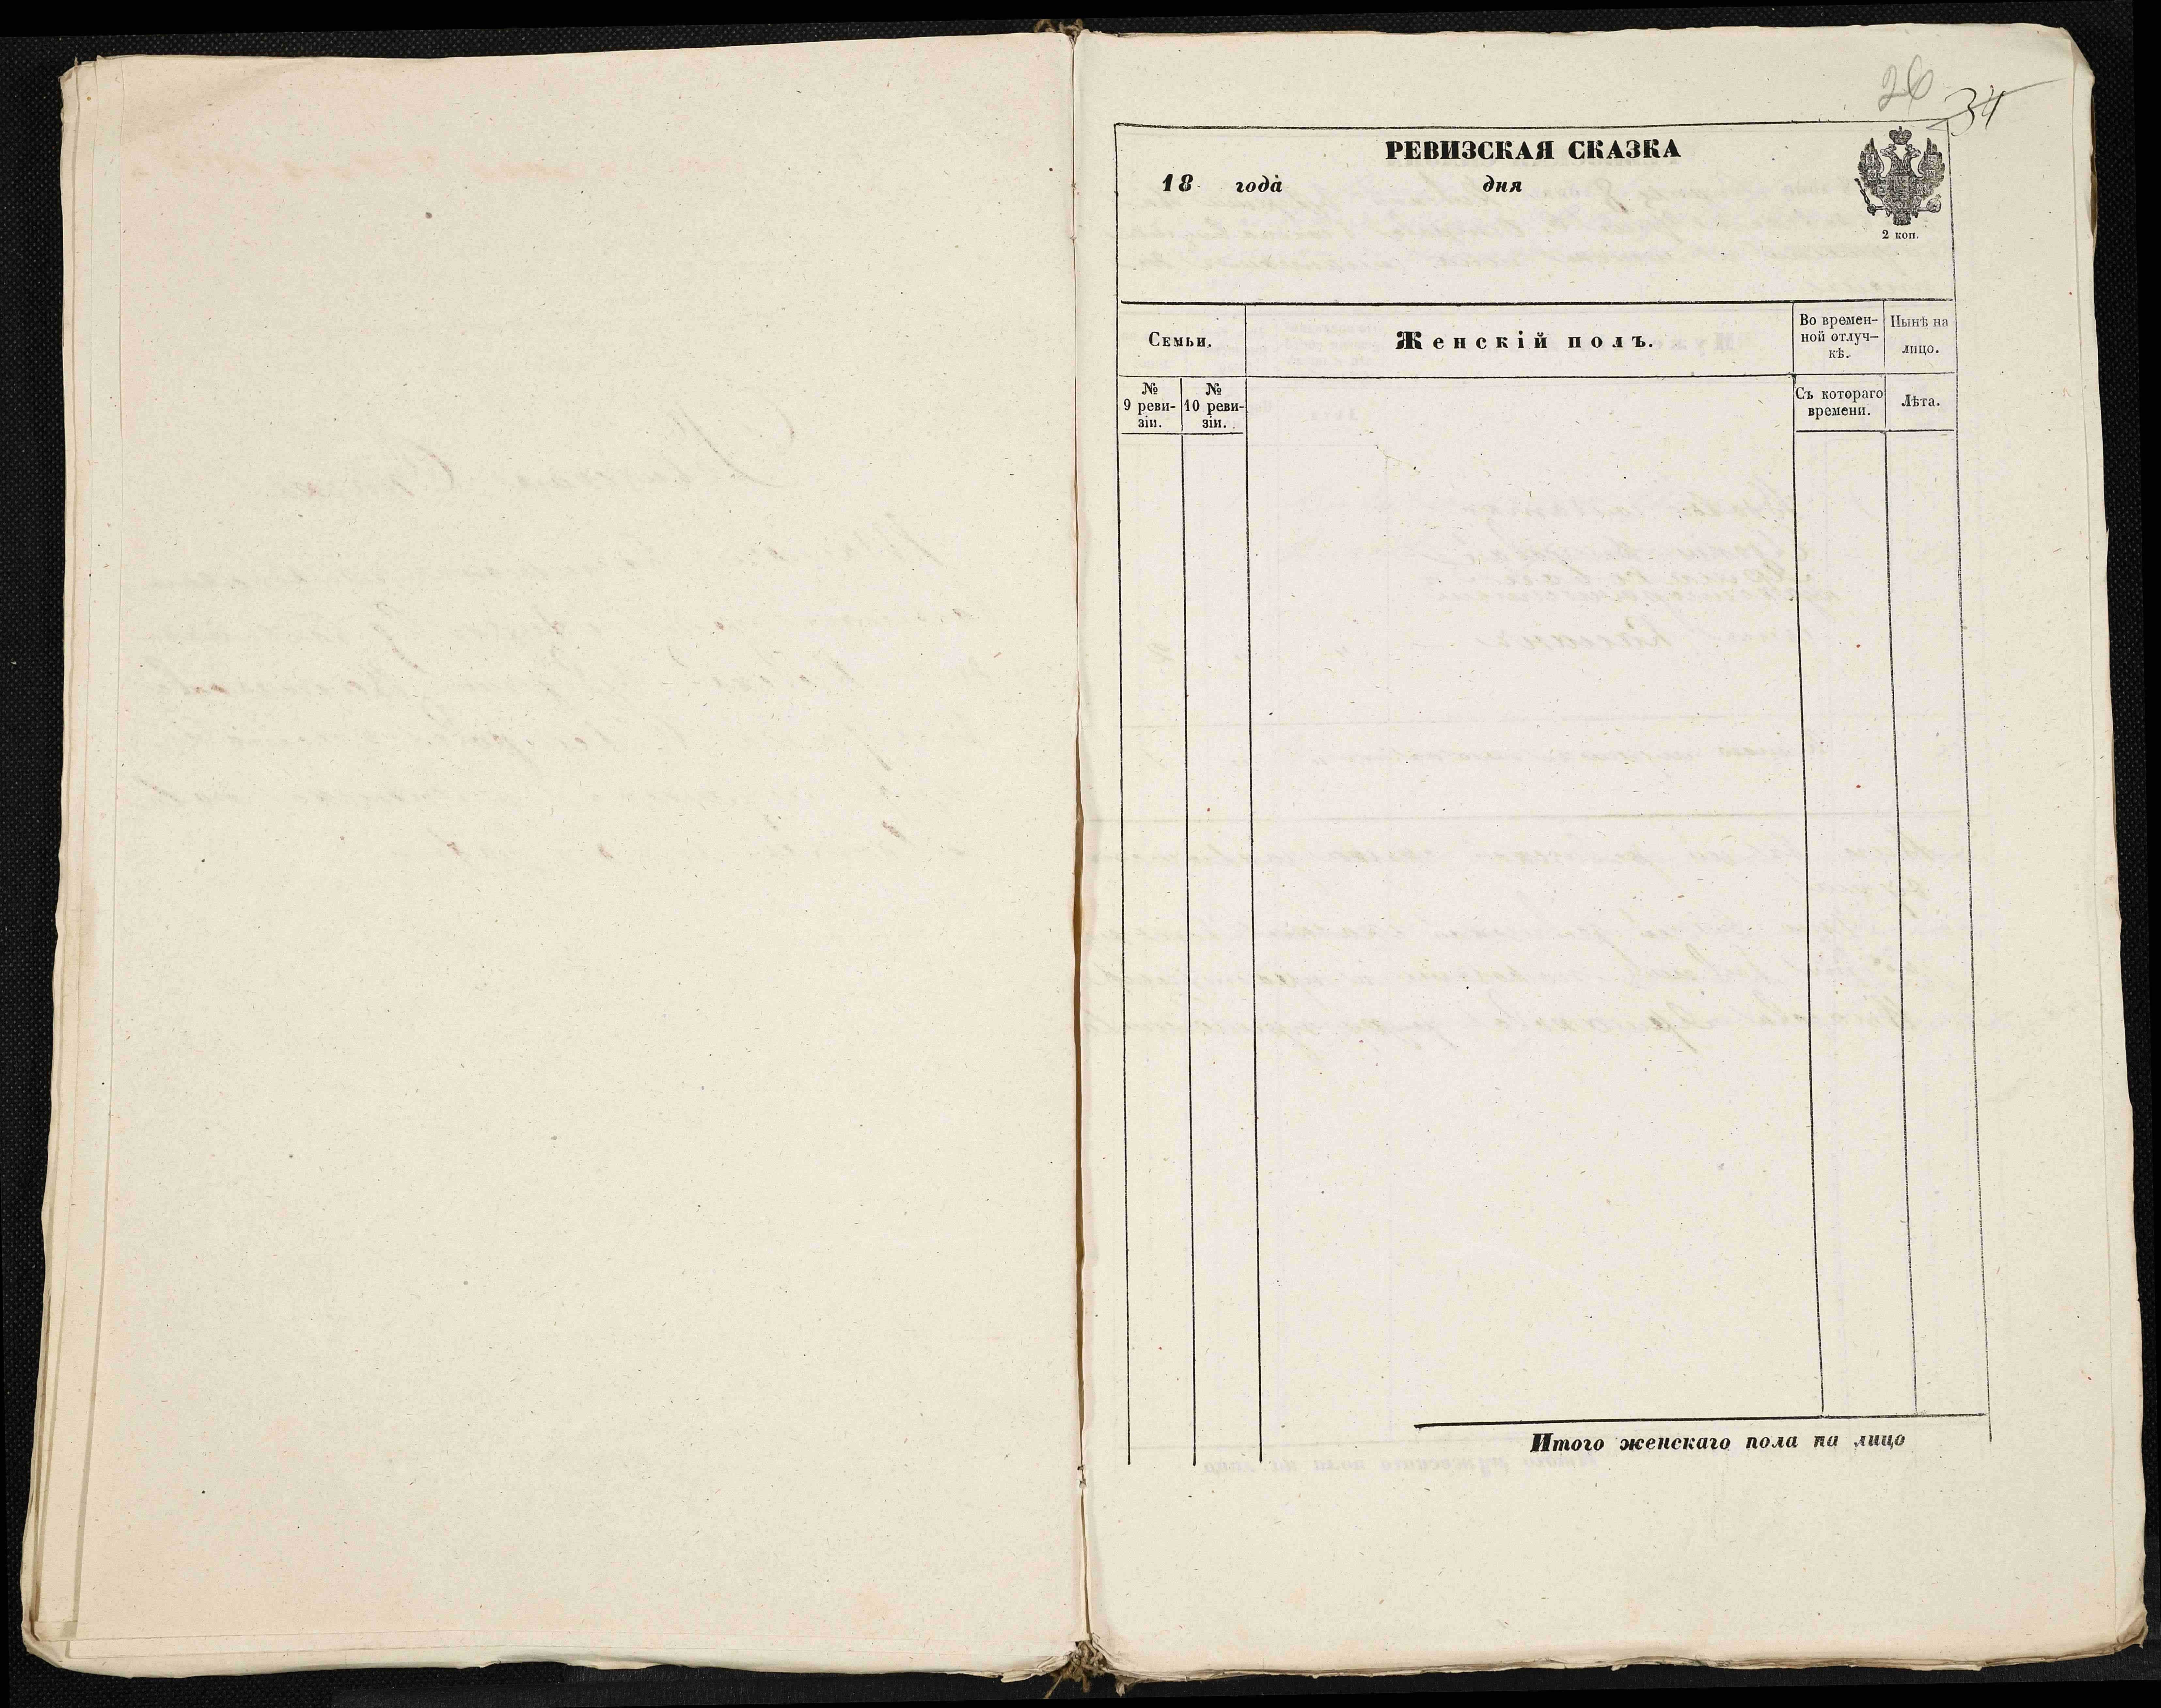 26
34
РЕВИЗСКАЯ СКАЗКА
18 года дня
2 коп.
Семьи.
Женскій полъ.
Во времен-
ной отлуч-
кѣ.
Нынѣ на
лицо.
№
9 реви-
зіи.
№
10 реви-
зіи.
Съ котораго
времени.
Лѣта.
Итого женскаго пола на лицо